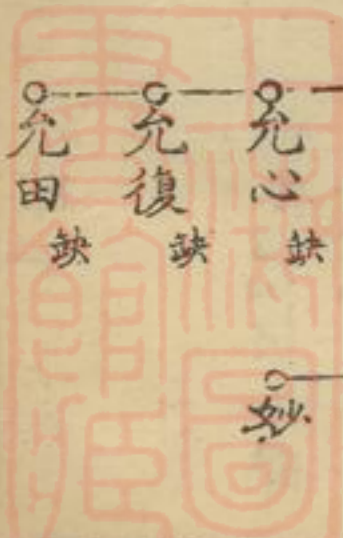 允心 缺
允復 缺
允田 缺
妙